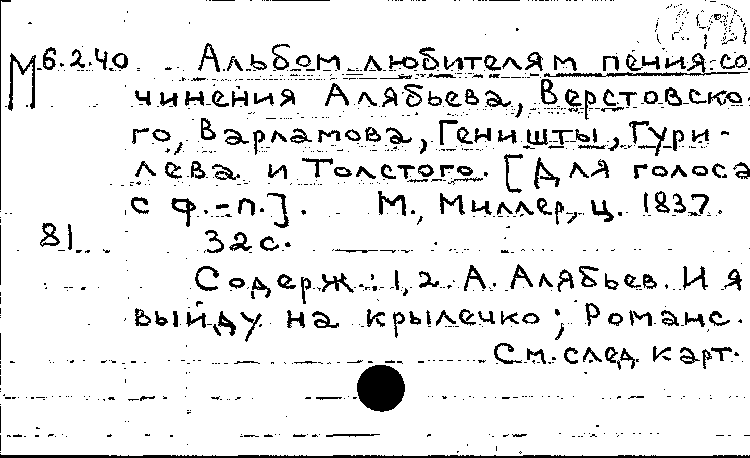 М 6.2.40 Альбом любителям пения со
чинения Алябьева, Верстовско
го, Варламова, Геништы, Гури-
лева и Толстого. [Для голоса
с ф.-п.]. М., Миллер, ц. 1837.
81 32 с.
Содерж.: 1,2. А. Алябьев. И я
выйду на крылечко; Романс.
См. след. карт.